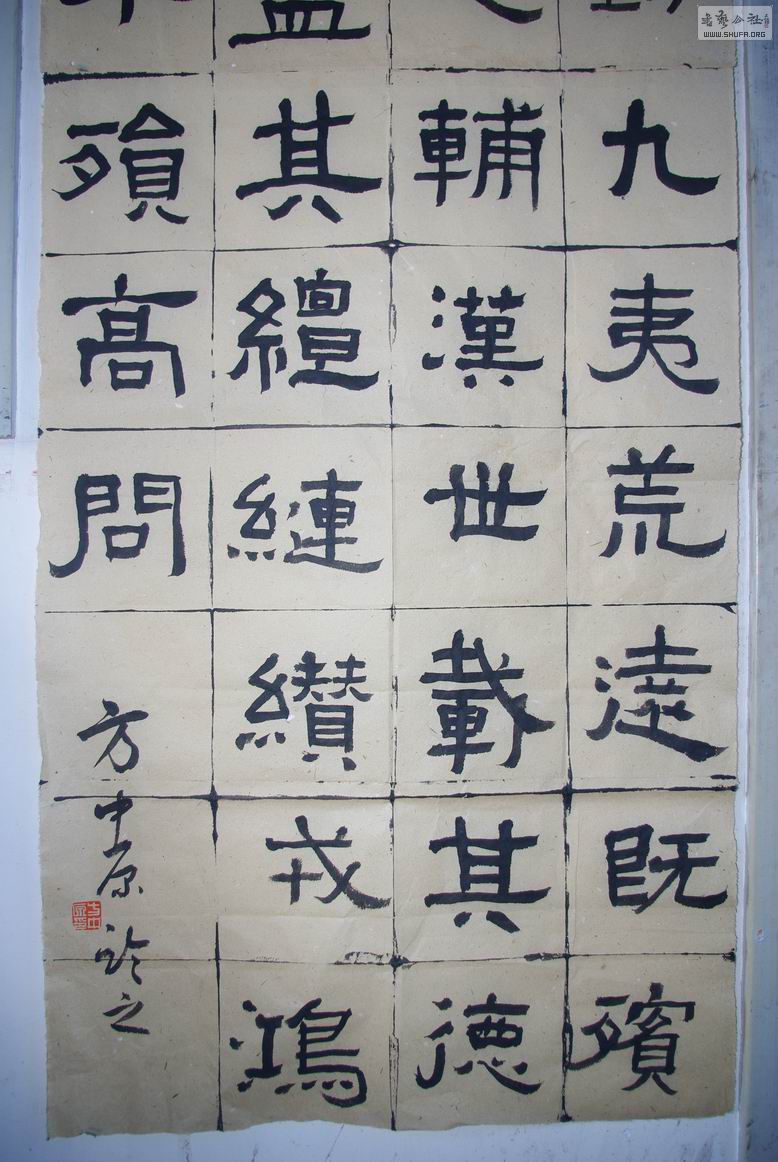 九夷荒遠既殯
輔漢世載其德
其繵縺纘戎鴻
殞高問
方中原臨之
書藝公社
WWW.SHUFA.ORG